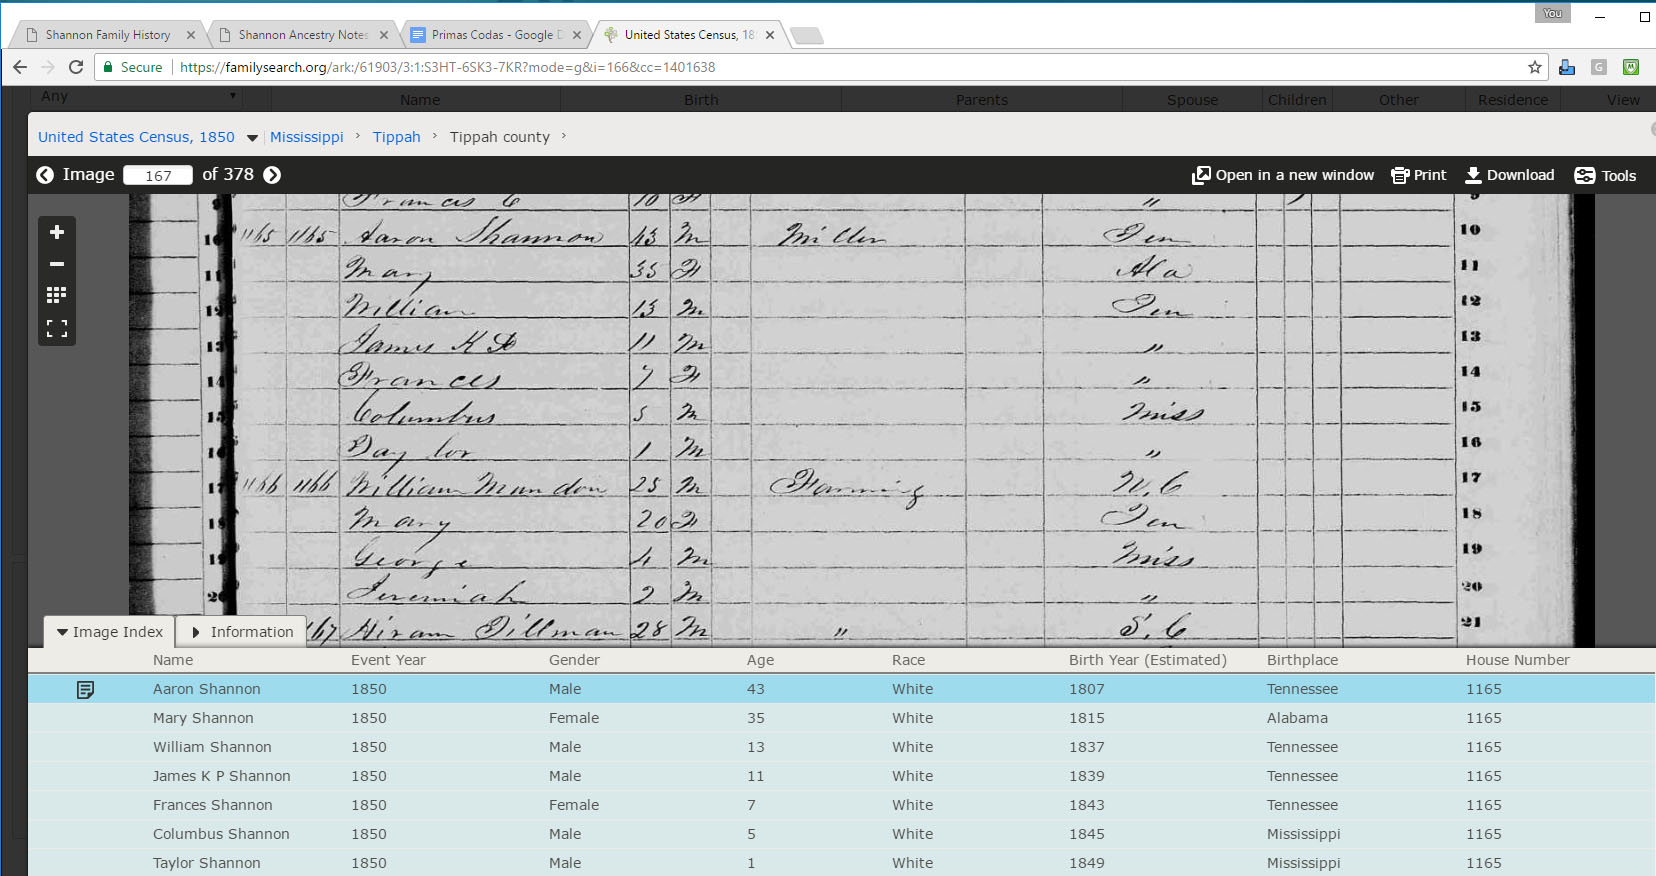 You
Shannon Family History
Shannon Ancestry Notes
Primas Codas - Google D
United States Census, 18
Secure https://familysearch.org/ark:/61903/3:1:S3HT-6SK3-7KR?mode=g&i=166&cc=1401638
G
Any Name Birth Parents Spouse Children Other Residence View
United States Census, 1850 Mississippi Tippah Tippah county
Image 167 of 378 Open in a new window Print Download Tools
9 Frances C 10 F " 9
10 1165 1165 Aaron Shannon 43 M Miller Ten 10
11 Mary 35 F Ala 11
12 William 13 M Ten 12
13 James K P 11 M " 13
14 Frances 7 F " 14
15 Columbus 5 M Miss 15
16 Taylor 1 M " 16
17 1166 1166 William Mundon 25 M Farming N.C 17
18 Mary 20 F Ten 18
19 George 4 M Miss 19
20 Jeremiah 2 M " 20
167 Hiram Tillman 28 M " S.C 21
Image Index Information
Name Event Year Gender Age Race Birth Year (Estimated) Birthplace House Number
Aaron Shannon 1850 Male 43 White 1807 Tennessee 1165
Mary Shannon 1850 Female 35 White 1815 Alabama 1165
William Shannon 1850 Male 13 White 1837 Tennessee 1165
James K P Shannon 1850 Male 11 White 1839 Tennessee 1165
Frances Shannon 1850 Female 7 White 1843 Tennessee 1165
Columbus Shannon 1850 Male 5 White 1845 Mississippi 1165
Taylor Shannon 1850 Male 1 White 1849 Mississippi 1165